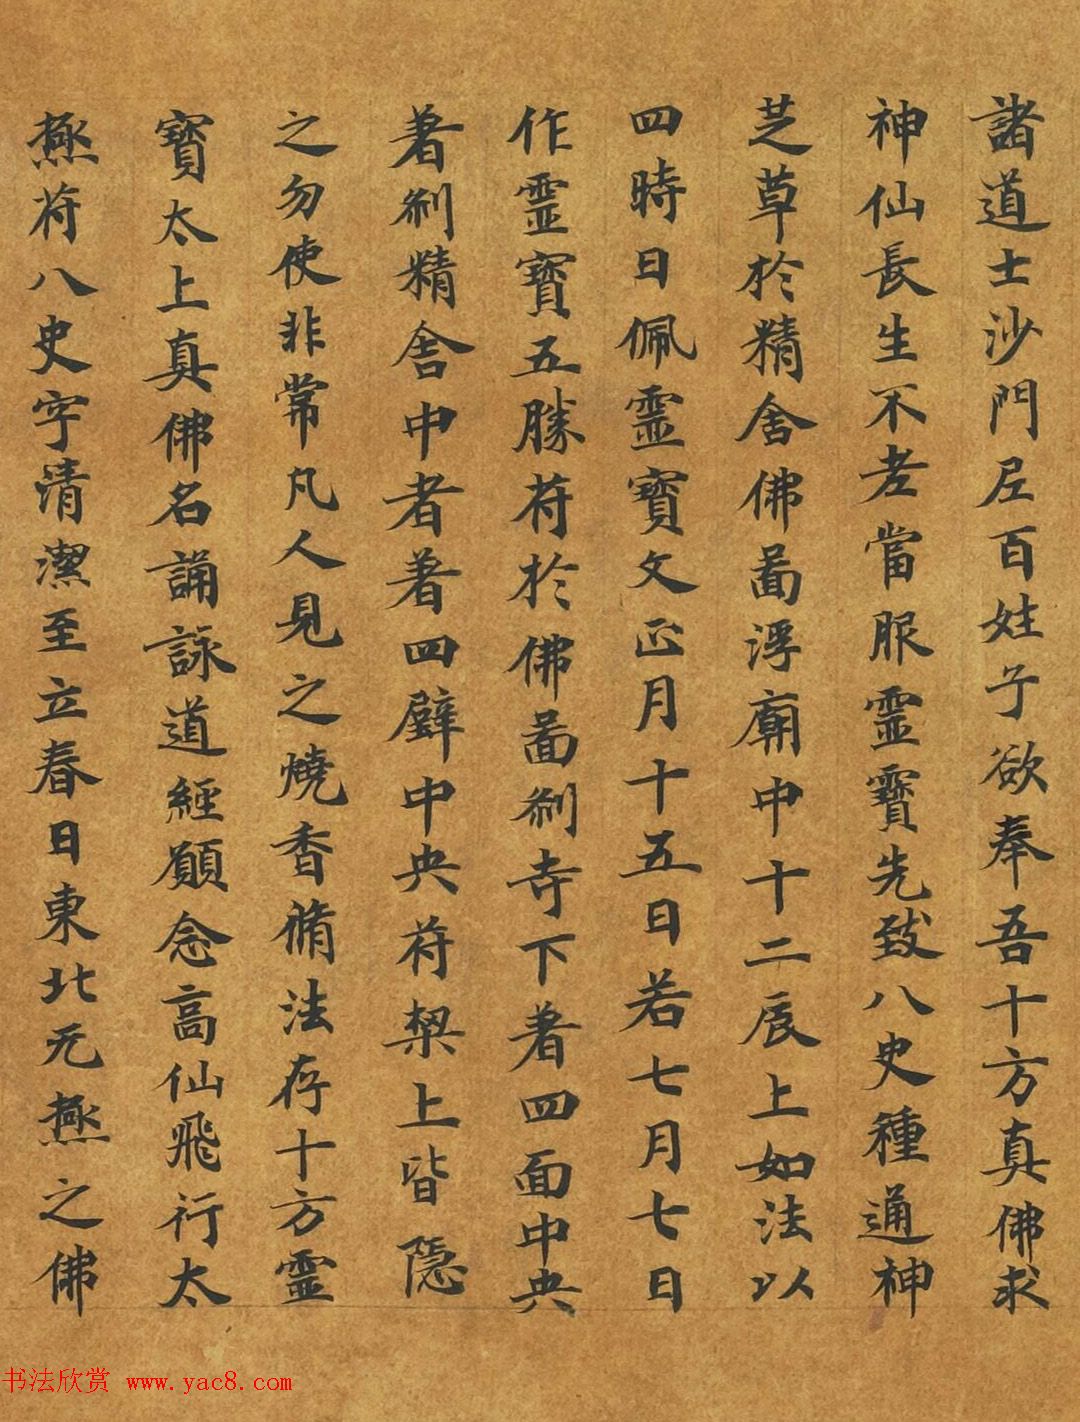 諸道士沙門尼百姓子欲奉吾十方真佛求
神仙長生不老當服靈寶先致八史種通神
芝草於精舍佛圖浮廟中十二辰上如法以
四時日佩靈寶文正月十五日若七月七日
作靈寶五勝符於佛圖刹寺下著四面中央
著刹精舍中者著四壁中央符梁上皆隱
之勿使非常凡人見之燒香脩法存十方靈
寶太上真佛名誦詠道經願念高仙飛行太
極符八史字清潔至立春日東北无極之佛
书法欣赏 www.yac8.com